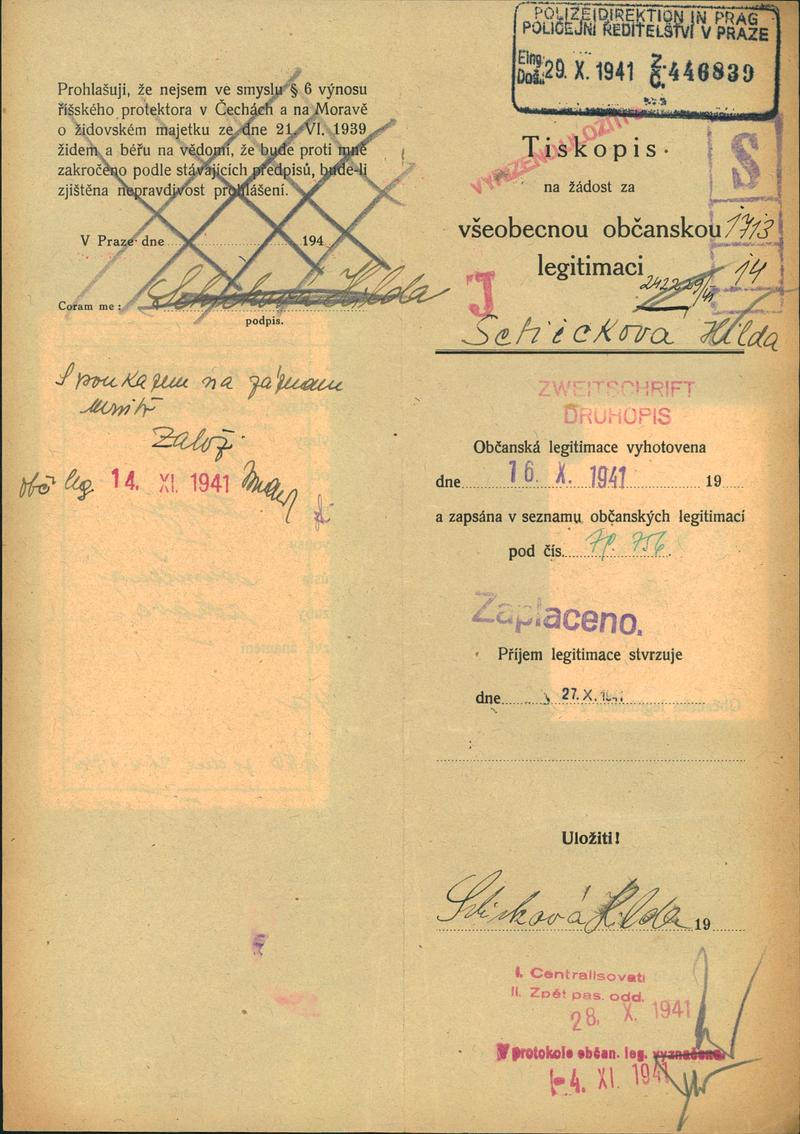 Prohlašuji, že nejsem ve smyslu § 6 výnosu
říšského protektora v Čechách a na Moravě
o židovském majetku ze dne 21. VI. 1939
židem a béřu na vědomí, že bude proti mně
zakročeno podle stávajících předpisů, bude-li
zjištěna nepravdivost prohlášení.
V Praze dne 194
Schicková Hilda
Coram me:
podpis.
S poukazem na záznam
Založ.
obč leg. 14. XI. 1941
POLIZEIDIREKTION IN PRAG
POLICEJNÍ ŘEDITELSTVÍ V PRAZE
Eing. Doš.: 29. X. 1941 Z. Č. 446839
Tiskopis
S
na žádost za
všeobecnou občanskou 1713
legitimaci 14
J
Schicková Hilda
ZWEITSCHRIFT
DRUHOPIS
Občanská legitimace vyhotovena
dne 16. X. 1941 19
a zapsána v seznamu občanských legitimací
pod čís. 756
Zaplaceno.
Příjem legitimace stvrzuje
dne 27. X. 1941
Uložiti!
Schicková Hilda 19
I. Centralisovati
II. Zpět pas. odd.
28. X. 1941
V protokole občan. leg. vyznačeno.
-4. XI. 1941